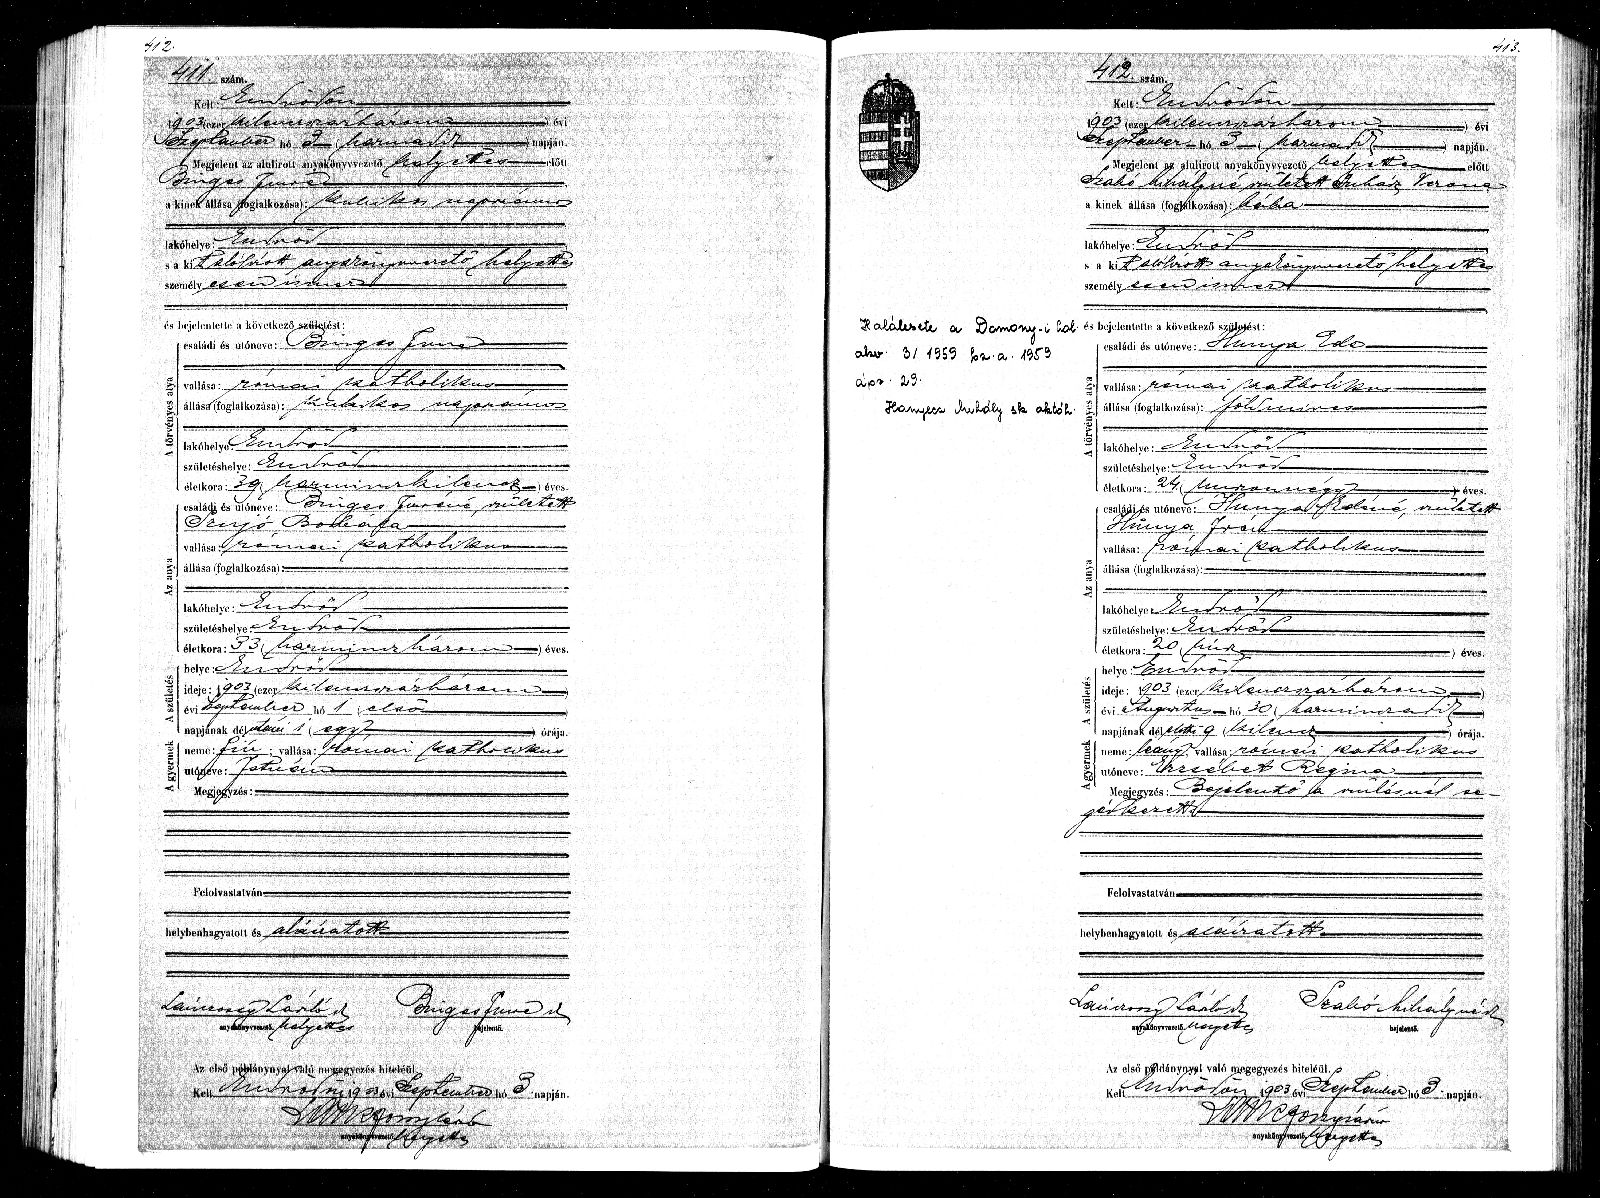 412.
411. szám.
Kelt: Endrődön
1903 (ezer kilenczszázhárom) évi
Szeptember hó 3 (harmadik) napján.
Megjelent az alulirott anyakönyvvezető helyettes előtt
a kinek állása (foglalkozása): kubikos napszámos
lakóhelye: Endrőd
s a kit alólirott anyakönyvvezető helyettes
személyesen ismer
és bejelentette a következő születést:
A törvényes atya
családi és utóneve:
vallása: római katholikus
állása (foglalkozása): kubikos napszámos
lakóhelye: Endrőd
születéshelye: Endrőd
életkora: 39 (harminczkilencz) éves.
Az anya
családi és utóneve: született
vallása: római katholikus
állása (foglalkozása):
lakóhelye: Endrőd
születéshelye: Endrőd
életkora: 33 (harminczhárom) éves.
A születés
helye: Endrőd
ideje: 1903 (ezer kilenczszázhárom)
évi Szeptember hó 1 (első)
napjának délutáni 1 (egy) órája.
A gyermek
neme: fiu; vallása: római katholikus
utóneve:
Megjegyzés:
Felolvastatván
helybenhagyatott és aláiratott
anyakönyvvezető helyettes
bejelentő.
Az első példánynyal való megegyezés hiteléül.
Kelt Endrődön 1903 évi Szeptember hó 3 napján.
anyakönyvvezető helyettes
413.
Halálesete a Domony-i hal.
akv. 3/1959 fsz. a. 1959
ápr. 29.
Hanyecz Mihály sk aktóh.
412. szám.
Kelt: Endrődön
1903 (ezer kilenczszázhárom) évi
Szeptember hó 3 (harmadik) napján.
Megjelent az alulirott anyakönyvvezető helyettes előtt
Szabó Mihályné született Juhász Verona
a kinek állása (foglalkozása): bába
lakóhelye: Endrőd
s a kit alólirott anyakönyvvezető helyettes
személyesen ismer
és bejelentette a következő születést:
A törvényes atya
családi és utóneve: Hunya Elek
vallása: római katholikus
állása (foglalkozása): földmives
lakóhelye: Endrőd
születéshelye: Endrőd
életkora: 24 (huszonnégy) éves.
Az anya
családi és utóneve: Hunya Elekné, született
Hunya
vallása: római katholikus
állása (foglalkozása):
lakóhelye: Endrőd
születéshelye: Endrőd
életkora: 20 (húsz) éves.
A születés
helye: Endrőd
ideje: 1903 (ezer kilenczszázhárom)
évi Augusztus hó 30 (harminczadik)
napjának délelőtti 9 (kilencz) órája.
A gyermek
neme: leány; vallása: római katholikus
utóneve: Erzsébet Regina
Megjegyzés: Bejelentő a szülésnél se-
gédkezett
Felolvastatván
helybenhagyatott és aláiratott
Szabó Mihályné
anyakönyvvezető helyettes
bejelentő.
Az első példánynyal való megegyezés hiteléül.
Kelt Endrődön 1903 évi Szeptember hó 3 napján.
anyakönyvvezető helyettes